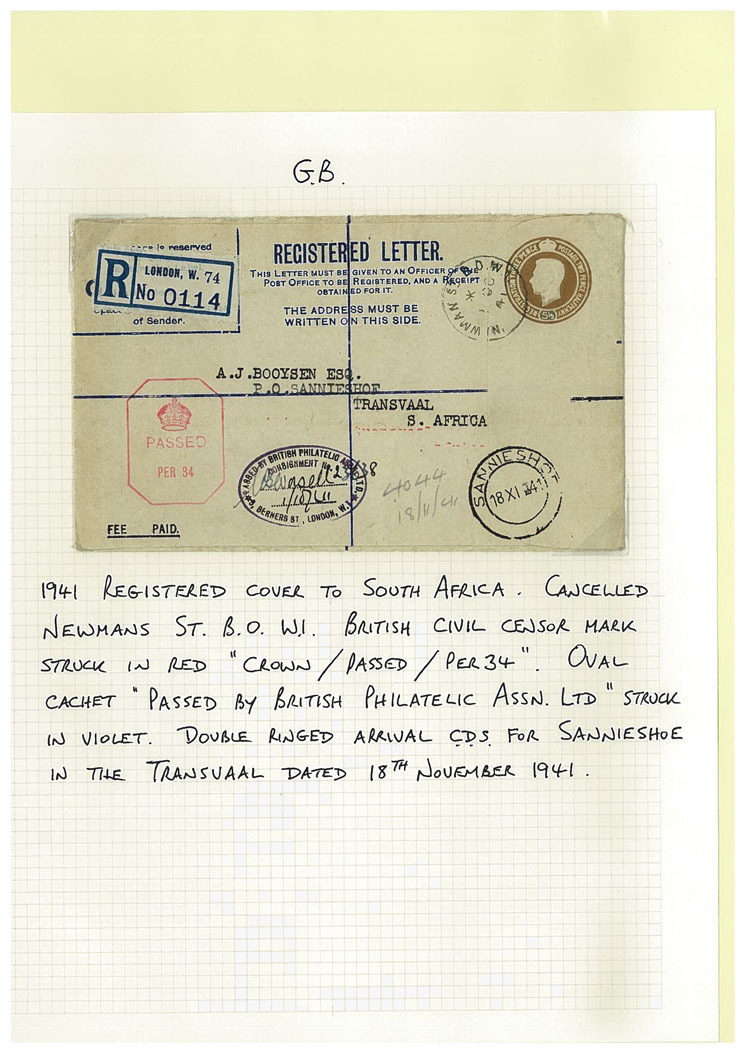 G.B.
is reserved
R LONDON, W. 74
No 0114
of Sender.
REGISTERED LETTER.
THIS LETTER MUST BE GIVEN TO AN OFFICER OF THE
POST OFFICE TO BE REGISTERED, AND A RECEIPT
OBTAINED FOR IT.
THE ADDRESS MUST BE
WRITTEN ON THIS SIDE.
NEWMANS
A.J.BOOYSEN ESQ.
P.O.SANNIESHOF
TRANSVAAL
S. AFRICA
PASSED
PER 34
PASSED BY BRITISH PHILATELIC LTD.
CONSIGNMENT No.
1/10/41
BERNERS ST., LONDON, W.1
4044
18/11/41
SANNIESHOF
18 XI 41
FEE PAID.
1941 REGISTERED COVER TO SOUTH AFRICA. CANCELLED
NEWMANS ST. B.O. W.1. BRITISH CIVIL CENSOR MARK
STRUCK IN RED "CROWN/PASSED/PER34". OVAL
CACHET "PASSED BY BRITISH PHILATELIC ASSN. LTD" STRUCK
IN VIOLET. DOUBLE RINGED ARRIVAL C.D.S. FOR SANNIESHOE
IN THE TRANSVAAL DATED 18TH NOVEMBER 1941.